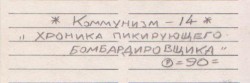 * Коммунизм - 14 *
" ХРОНИКА ПИКИРУЮЩЕГО
БОМБАРДИРОВЩИКА "
=90=